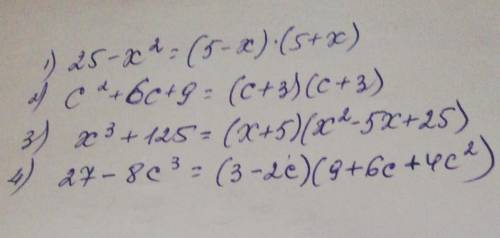 1) 25-x² = (5-x)·(5+x)
2) c²+6c+9 = (c+3)(c+3)
3) x³+125 = (x+5)(x²-5x+25)
4) 27-8c³ = (3-2c)(9+6c+4c²)